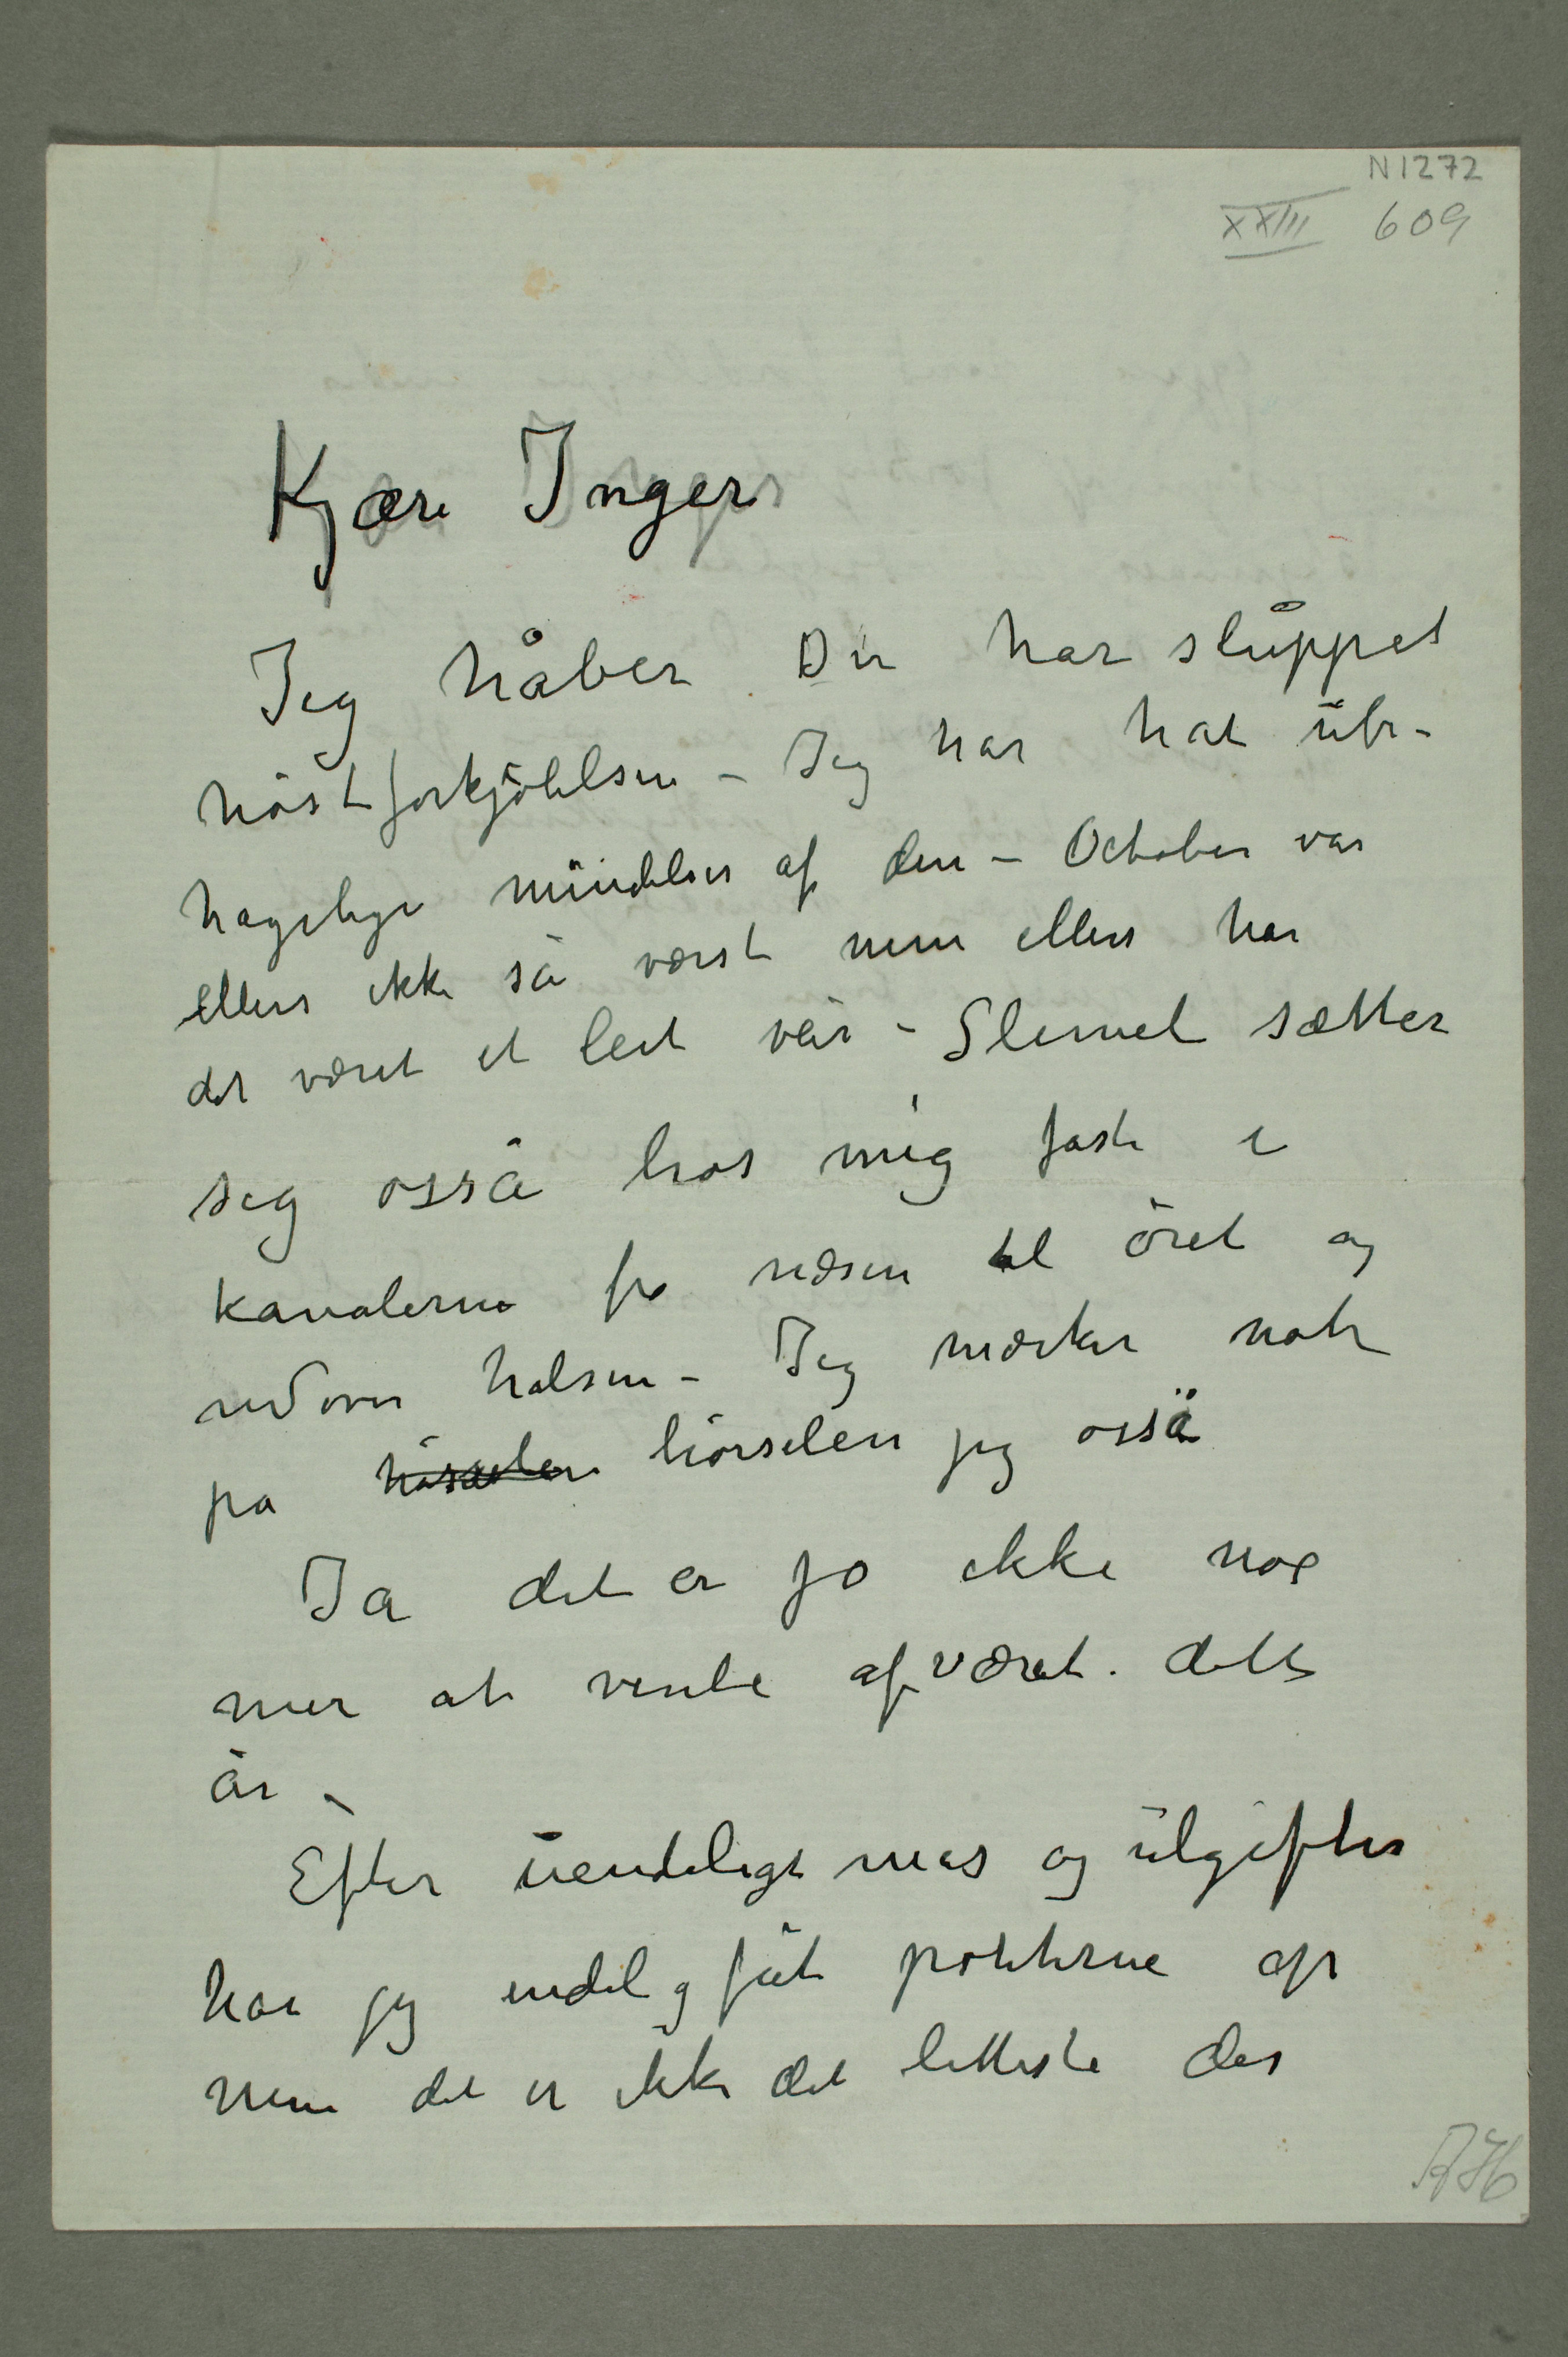 N 1272
XXIII 609
Kjære Inger
Jeg håber Du har sluppet
höstforkjölelsen – Jeg har hat ube-
hagelige mindelser af den – October var
ellers ikke så værst men ellers har
det været et leit veir – Slimet sætter
sig osså hos mig fast i
kanalerne fra næsen til öret og
nedover halsen – Jeg mærker nok
på hörselen jeg osså
Ja det er jo ikke noe
mer at vente af været dette
år –
Efter uendeligt mas og utgifter
har jeg endelig fåt potterne op
men det er ikke det letteste der